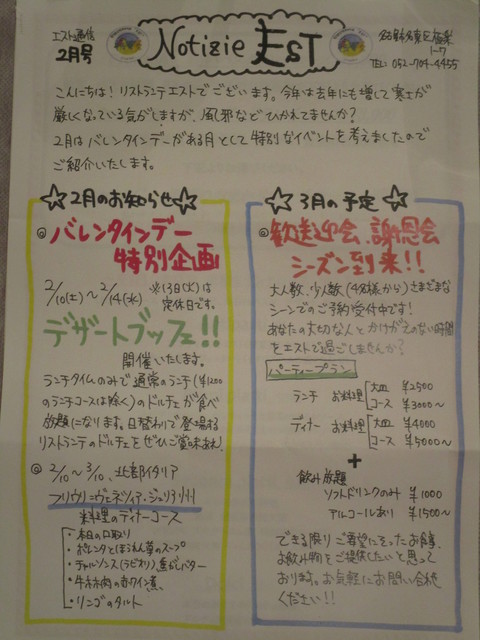 エスト通信
2月号
Notizie EST
1-7
TEL: 052-704-4455
こんにちは！リストランテエストでございます。今年は去年にも増して寒さが
厳しくなっている気がしますが、風邪などひかれてませんか？
2月はバレンタインデーがある月として特別なイベントを考えましたので
ご紹介いたします。
☆2月のお知らせ☆
◎バレンタインデー
特別企画
2/10(土)〜2/14(水)
※13日(火)は
定休日です。
デザートブッフェ!!
開催いたします。
ランチタイムのみで通常のランチ(¥1200
のランチコースは除く)のドルチェが食べ
放題になります。日替わりで登場する
リストランテのドルチェをぜひご賞味あれ。
◎2/10〜3/10、北部イタリア
フリウリ=ヴェネツィア・ジュリア州
料理のディナーコース
・本日の口取り
・ポレンタとほうれん草のスープ
・チャルソンス(ラビオリ)焦がしバター
・牛ホホ肉の赤ワイン煮
・リンゴのタルト
☆3月の予定☆
◎歓送迎会、謝恩会
シーズン到来!!
大人数、少人数(4名様から)さまざまな
シーンでのご予約受付中です！
あなたの大切な人とかけがえのない時間
をエストで過ごしませんか？
パーティープラン
ランチ お料理 大皿 ¥2500
コース ¥3000〜
ディナー お料理 大皿 ¥4000
コース ¥5000〜
+
飲み放題
ソフトドリンクのみ ¥1000
アルコールあり ¥1500〜
できる限りご希望にそったお食事、
お飲み物をご提供したいと思って
おります。お気軽にお問い合せ
ください!!